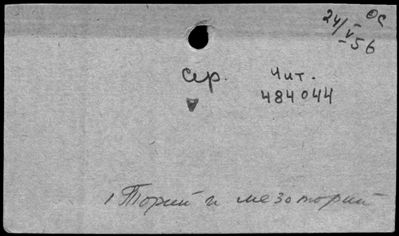 24/V-56 ОС
ср. Чит.
484044
1 Торий и мезоторий